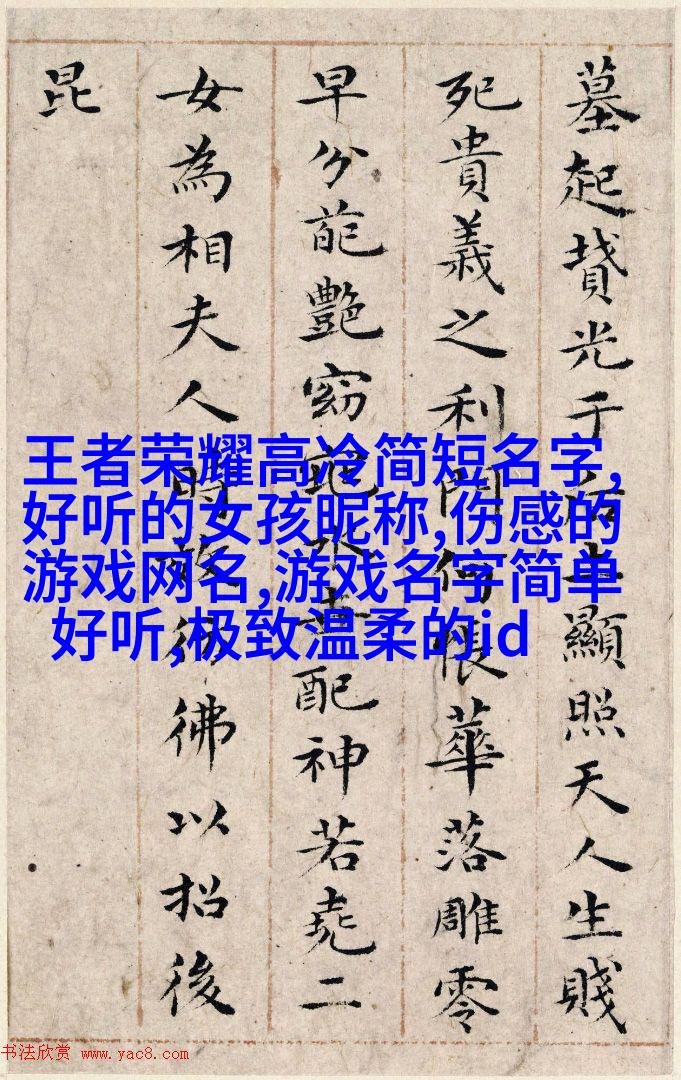 墓起墳光于后土顯照天人生賤
死貴義之利門何悵華落雕零
早分葩艷窈窕永世配神若堯二
女為相夫人時效彷彿以招後
昆
王者荣耀高冷简短名字,
好听的女孩昵称,伤感的
游戏网名,游戏名字简单
好听,极致温柔的id
书法欣赏 www.yac8.com